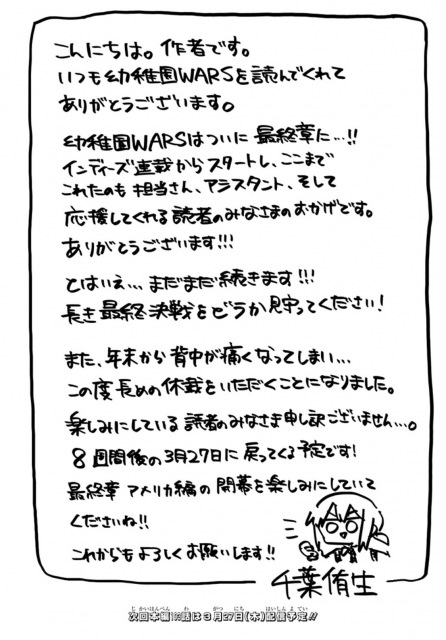 こんにちは。作者です。
いつも幼稚園WARSを読んでくれて
ありがとうございます。
幼稚園WARSはついに最終章に…!!
インディーズ連載からスタートし、ここまで
これたのも担当さん、アシスタント、そして
応援してくれる読者のみなさまのおかげです。
ありがとうございます!!!
とはいえ…まだまだ続きます!!!
長き最終決戦をどうか見守ってください!
また、年末から背中が痛くなってしまい…
この度長めの休載をいただくことになりました。
楽しみにしている読者のみなさま申し訳ございません…。
8週間後の3月27日に戻ってくる予定です!
最終章アメリカ編の開幕を楽しみにしていて
くださいね!!
これからもよろしくお願いします!!
千葉侑生
次回本編は3月27日(木)配信予定!!